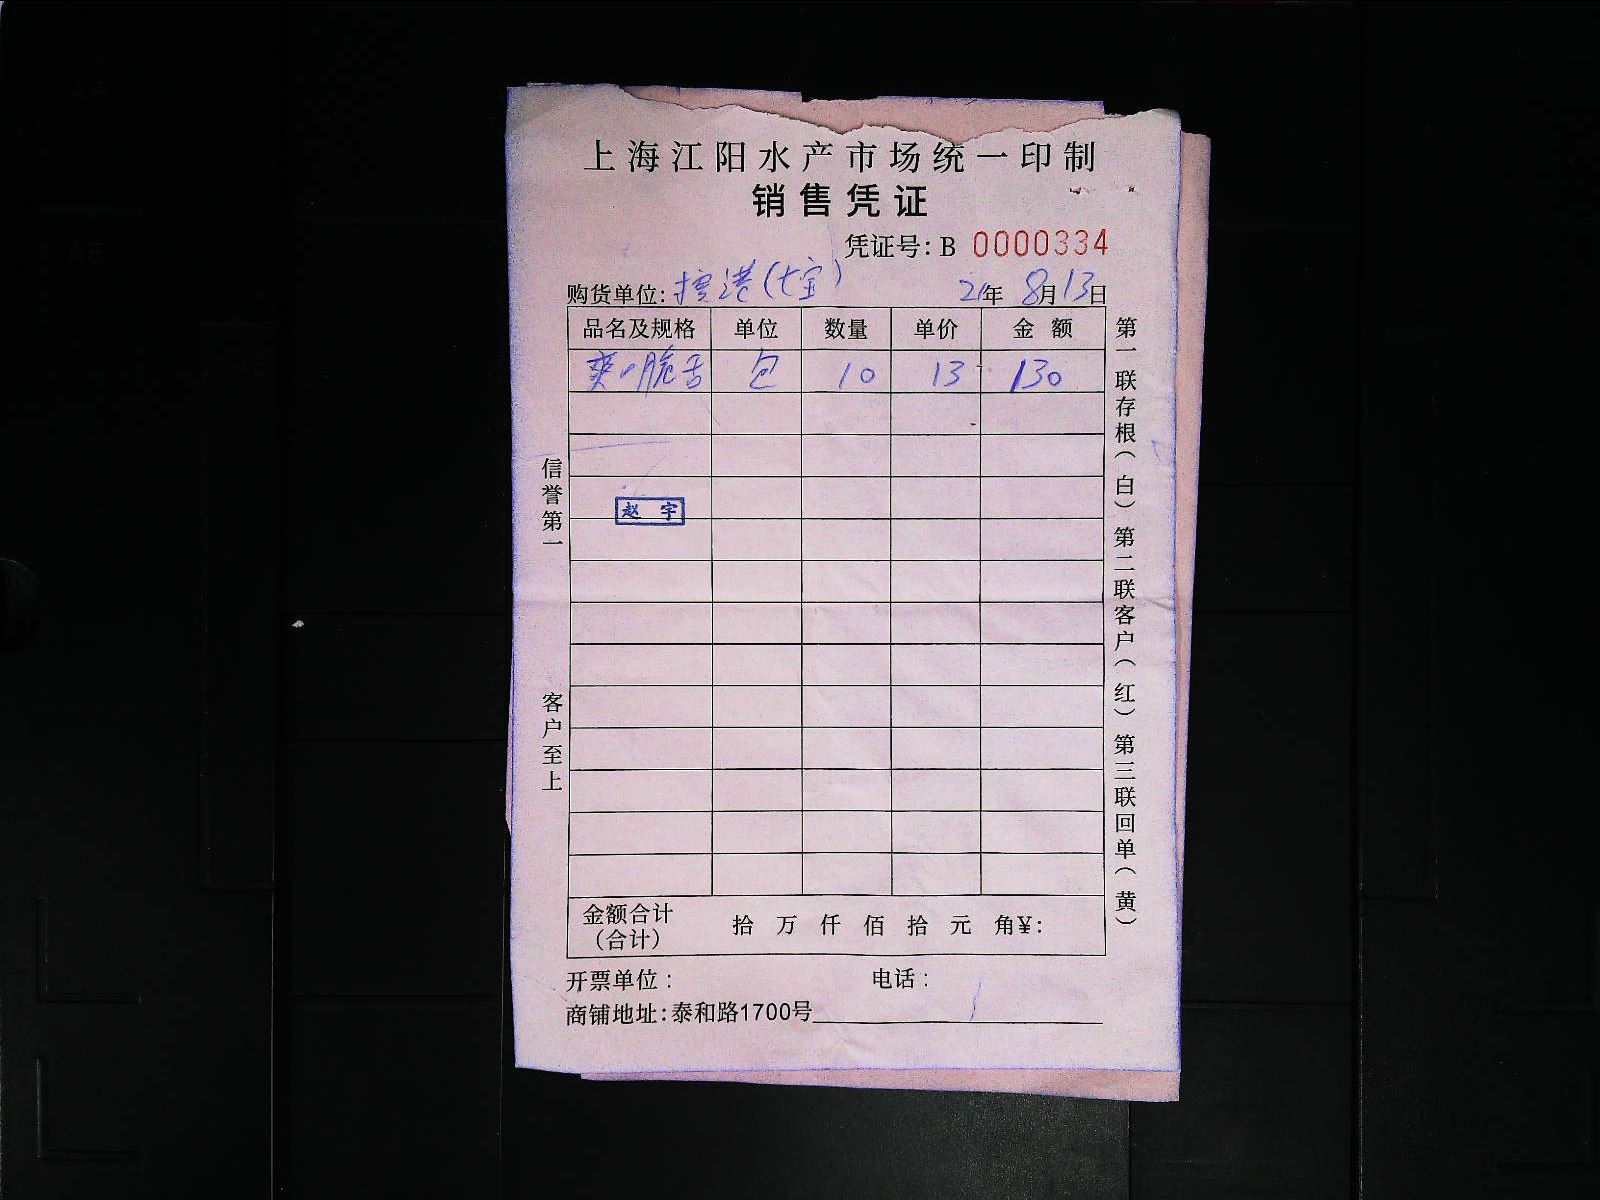 上海江阳水产市场统一印制
销售凭证
凭证号: B 0000334
购货单位: 港(七宝) 21年 8月13日
品名及规格 单位 数量 单价 金额
爽 脆舌 包 10 13 130
赵宇
信誉第一
客户至上
第一联存根(白) 第二联客户(红) 第三联回单(黄)
金额合计 拾 万 仟 佰 拾 元 角¥:
(合计)
开票单位: 电话:
商铺地址: 泰和路1700号